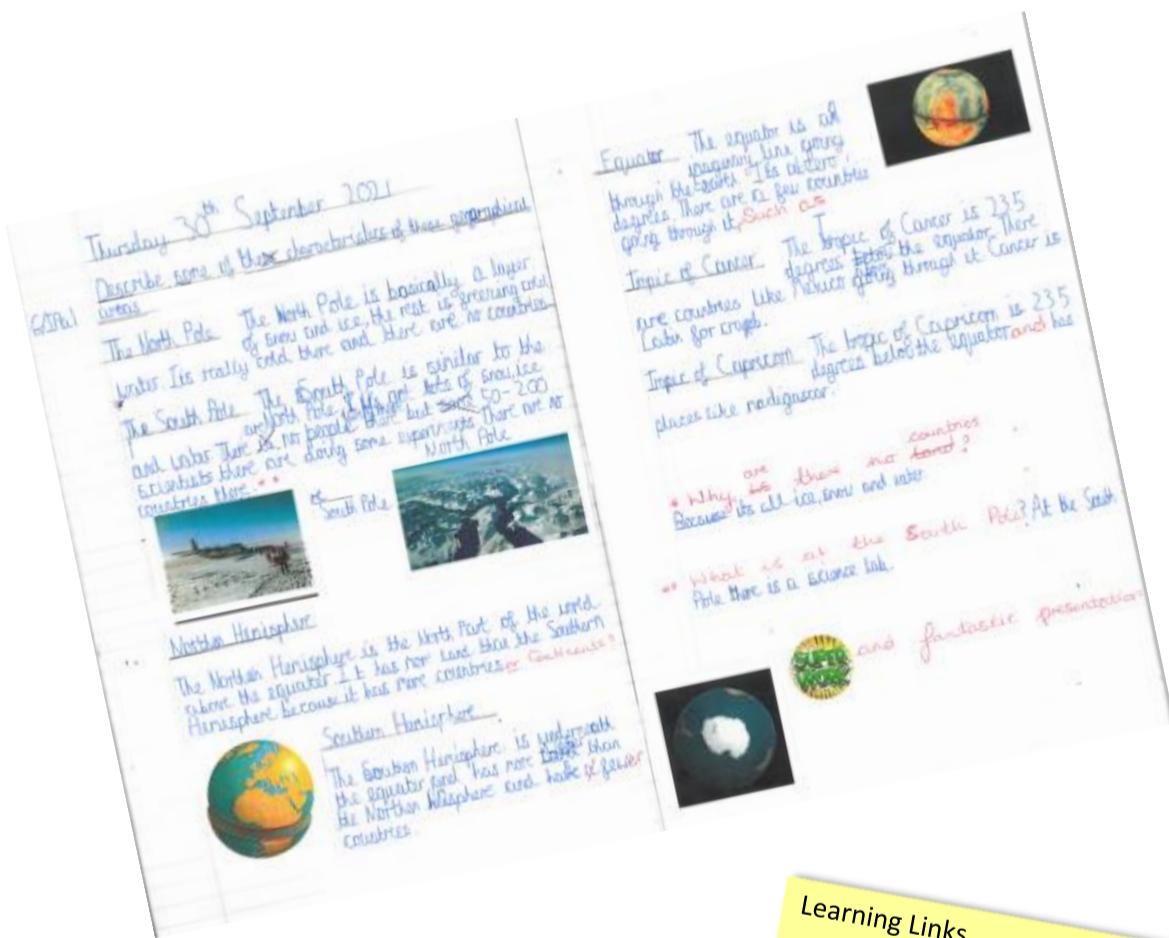 Thursday 30th September 2021
Describe some of these characteristics of these geographical
areas
The North Pole The North Pole is basically a layer
of snow and ice, the rest is freezing cold
water. Its really cold there and there are no countries
The South Pole The South Pole is similar to the
North Pole lots of snow, ice
and water There are no people there but some 50-200
scientists there are doing some experiments There are no
countries there. **
North Pole
South Pole
Northen Hemisphere
The Northen Hemisphere is the North Part of the world
above the equater It has mor land than the Southern
Hemisphere because it has more countries or Continents?
Southen Hemisphere
The Southen Hemisphere is underneath
the equater and has more than
the Northen and have fewer
countries.
Equator The equator is an
imaginary line going
through the earth Its at zero
degrees There are a few countries
going through it, Such as
Tropic of Cancer The Tropic of Cancer is 23.5
degrees the equator There
are countries like Mexico going through it Cancer is
Latin for crab.
Tropic of Capricorn The tropic of Capricorn is 23.5
degrees below the equator and has
places like madigascar.
countries
are
* Why is there no land?
Because its all ice, snow and water
** What is at the South Pole? At the South
Pole there is a science lab.
SUPER WORK and fantastic presentation
Learning Links